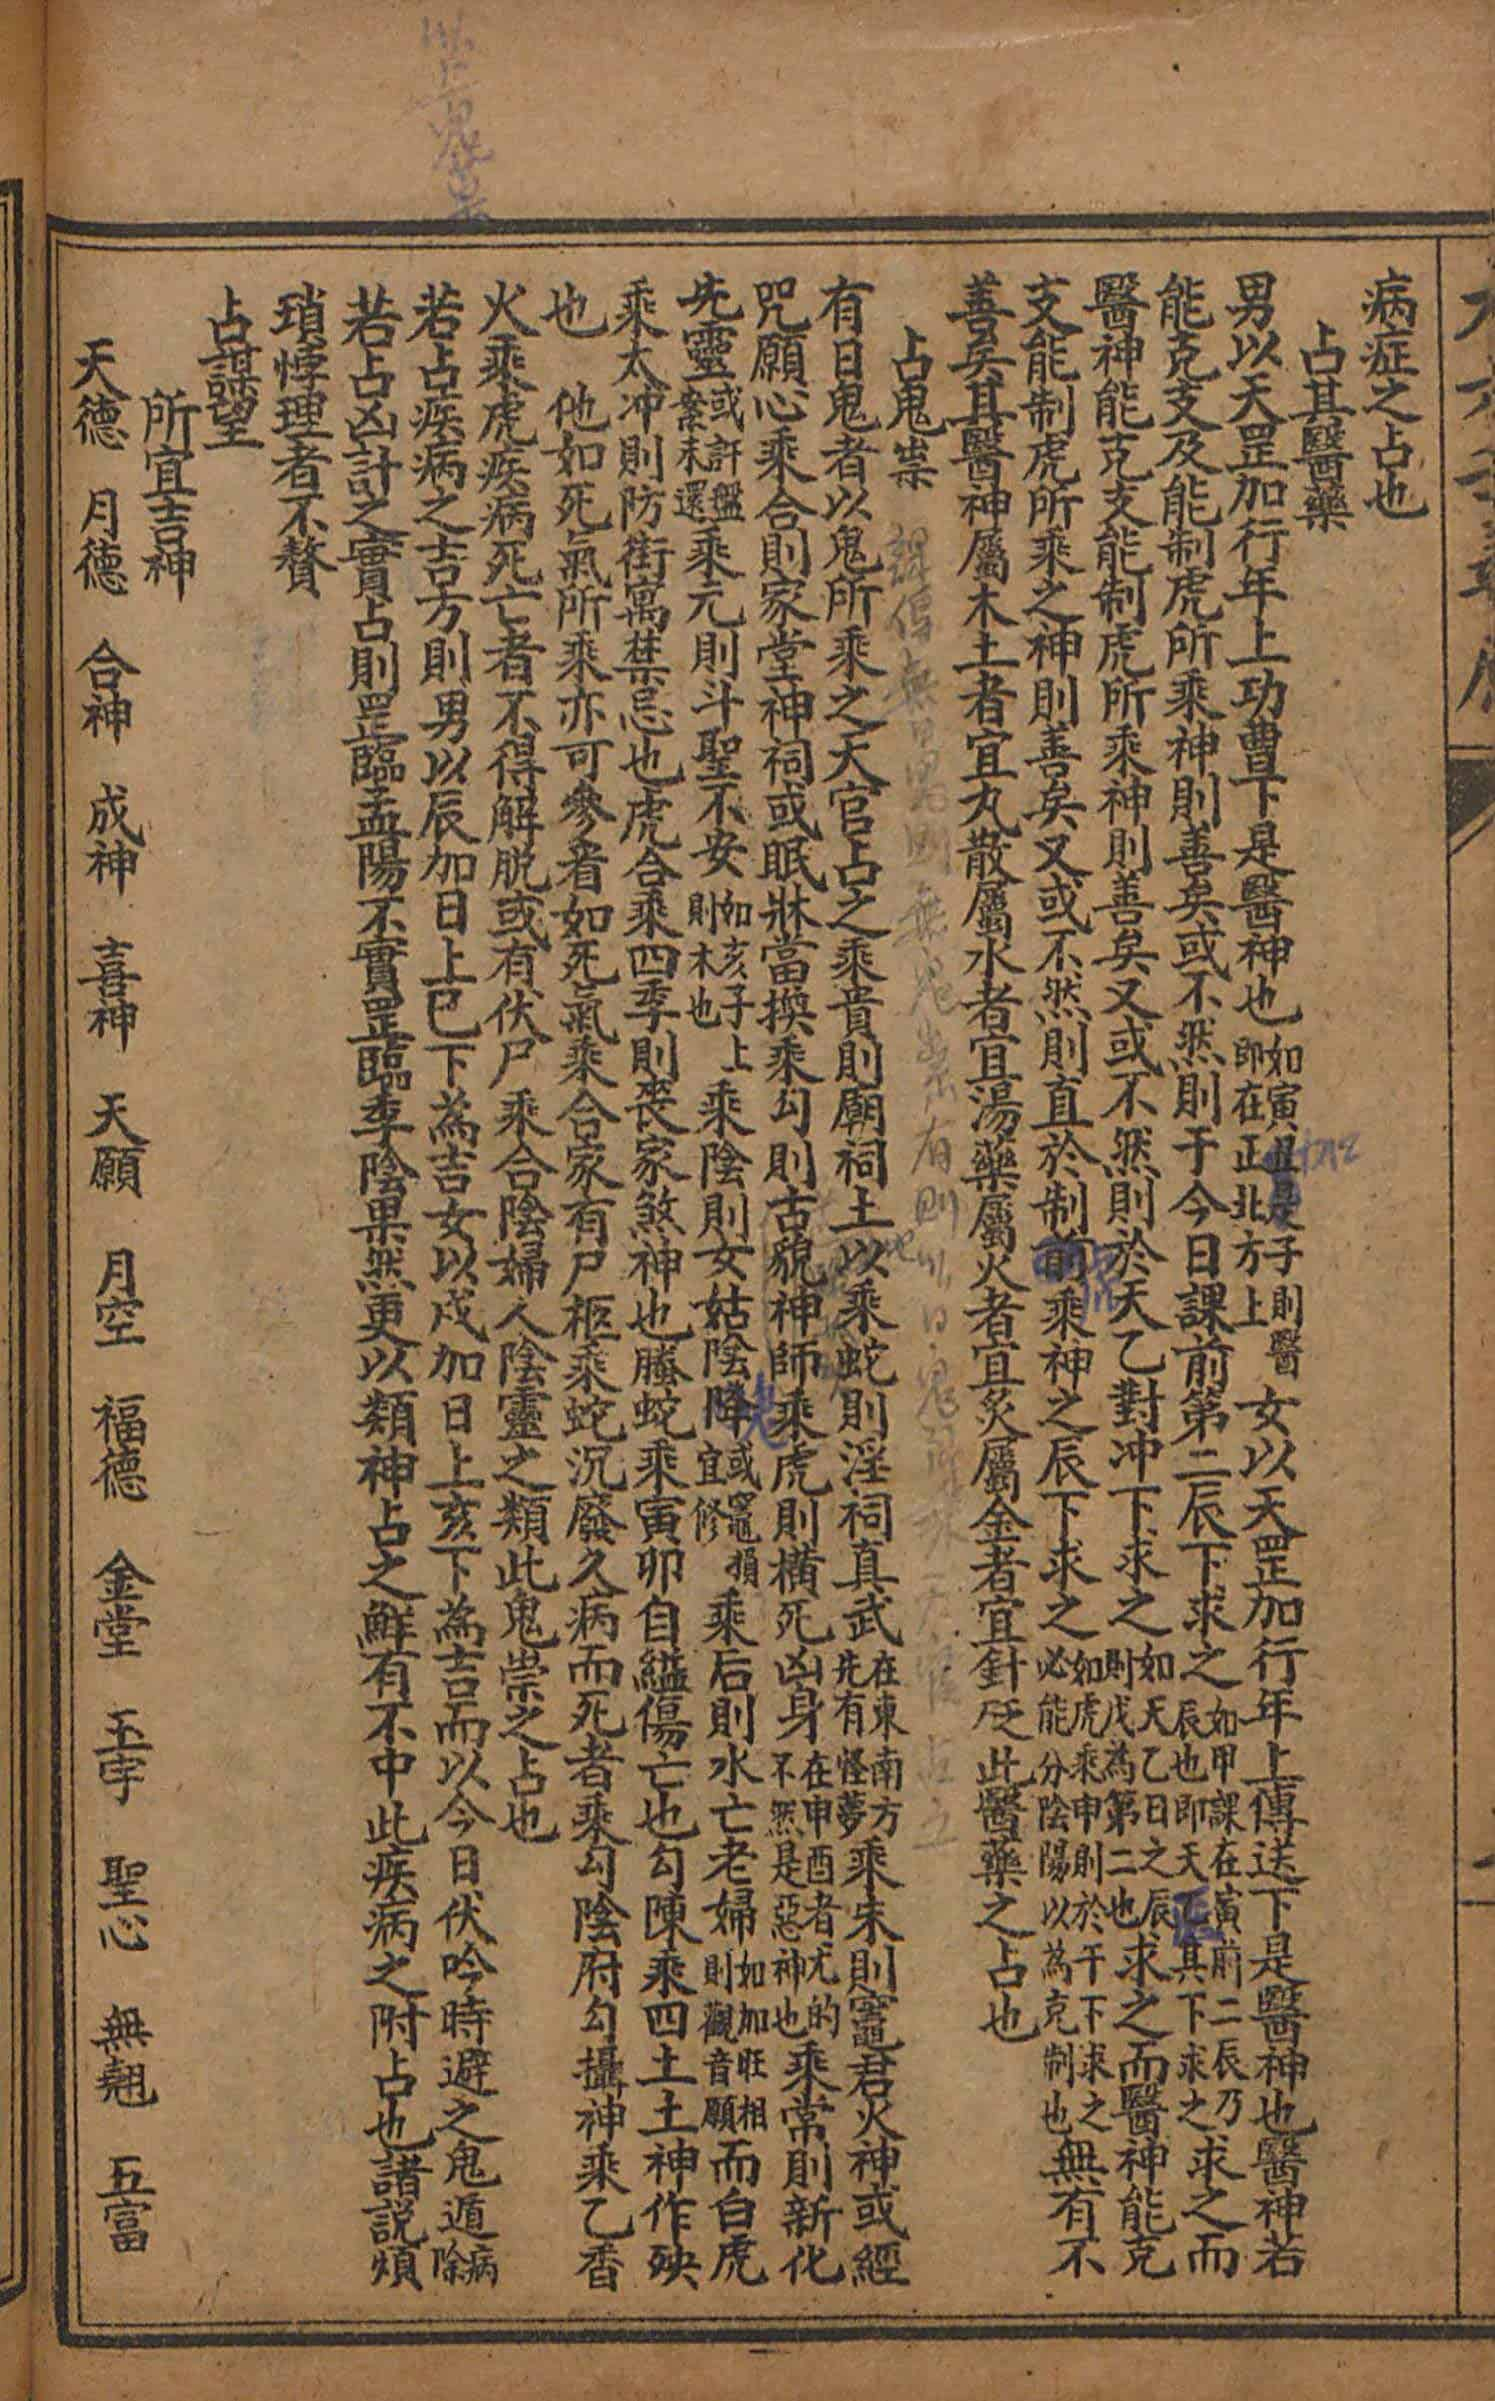 病症之占也
占其醫藥
男以天罡加行年上功曹下是醫神也如寅丑是子則醫即在正北方上女以天罡加行年上傳送下是醫神也醫神若
能克支及能制虎所乘神則善矣或不然則于今日課前第二辰下求之如甲課在寅前二辰乃辰也即天其下求之求之而
醫神能克支能制虎所乘神則善矣又或不然則於天乙對冲下求之如天乙日之辰則戊為第二也求之而醫神能克
支能制虎所乘之神則善矣又或不然則直於制前乘神之辰下求之如虎乘申則於干下求之必能分陰陽以為克制也無有不
善矣其醫神屬木土者宜丸散屬水者宜湯藥屬火者宜炙屬金者宜針砭此醫藥之占也
占鬼祟
有日鬼者以鬼所乘之天官占之乘貴則廟祠土以乘蛇則淫祠真武在東南方先有怪夢乘朱則竈君火神或經
咒願心乘合則家堂神祠或眠牀當換乘勾則古貌神師乘虎則橫死凶身在申酉者尤的不然是惡神也乘常則新化
先靈或許盤繫未還乘元則斗聖不安如亥子上則木也乘陰則女姑陰降或竈損宜修乘后則水亡老婦如加旺相則觀音願而白虎
乘太冲則防街寓禁忌也虎合乘四季則喪家煞神也螣蛇乘寅卯自縊傷亡也勾陳乘四土土神作殃
也 他如死氣所乘亦可參看如死氣乘合家有尸柩乘蛇沉廢久病而死者乘勾陰府勾攝神乘乙香
火乘虎疾病死亡者不得解脱或有伏尸乘合陰婦人陰靈之類此鬼祟之占也
若占疾病之吉方則男以辰加日上巳下為吉女以戌加日上亥下為吉而以今日伏吟時避之鬼遁病除
若占凶計之實占則罡臨孟陽不實罡臨季陰果然更以類神占之鮮有不中此疾病之附占也諸説煩
瑣悖理者不贅
占謀望
所宜吉神
天德 月德 合神 成神 喜神 天願 月空 福德 金堂 玉宇 聖心 無翹 五富